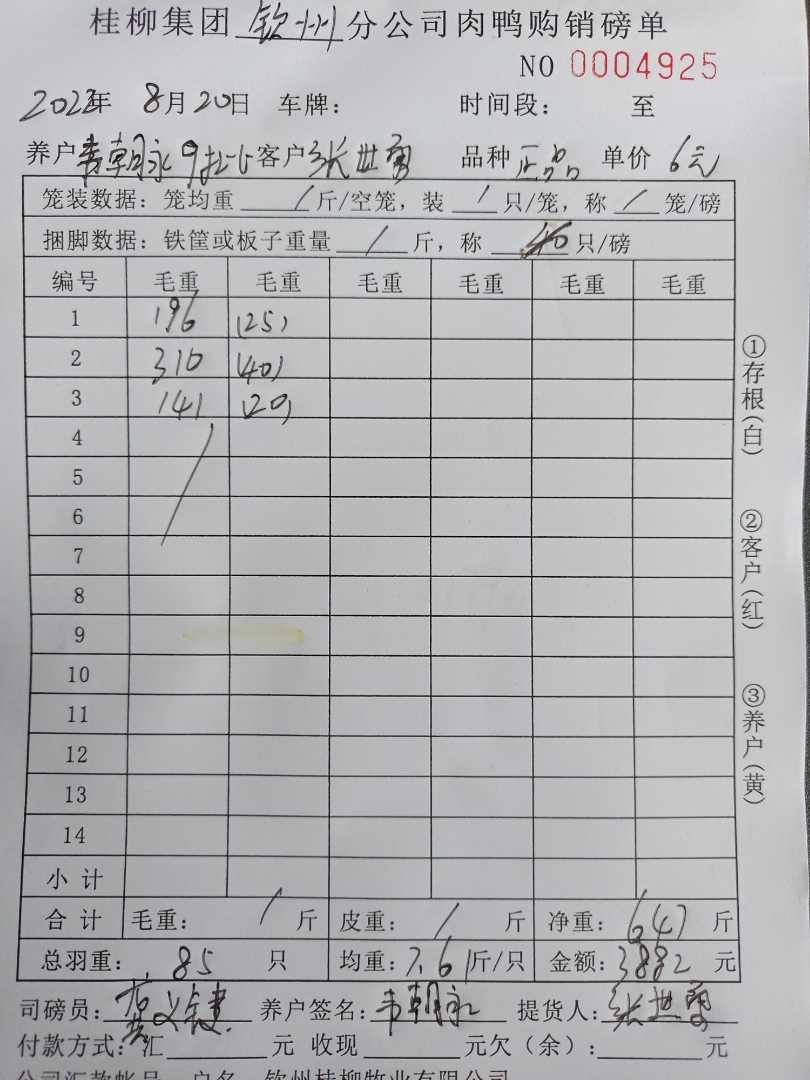 桂柳集团 钦州 分公司肉鸭购销磅单
NO 0004925
2022年 8月20日 车牌: 时间段: 至
养户 韦朝永9批-6 客户 张世勇 品种 正品 单价 6元
笼装数据: 笼均重 / 斤/空笼, 装 / 只/笼, 称 / 笼/磅
捆脚数据: 铁筐或板子重量 / 斤, 称 40 只/磅
编号 毛重 毛重 毛重 毛重 毛重 毛重
1 196 (25)
2 310 (40)
3 141 (20)
4
5
6
7
8
9
10
11
12
13
14
小计
合计 毛重: / 斤 皮重: / 斤 净重: 647 斤
总羽重: 85 只 均重: 7.61 斤/只 金额: 3882 元
司磅员: 养户签名: 韦朝永 提货人: 张世勇
付款方式: 汇 元 收现 元欠(余): 元
公司汇款帐号 户名 钦州桂柳牧业有限公司
①存根(白)
②客户(红)
③养户(黄)